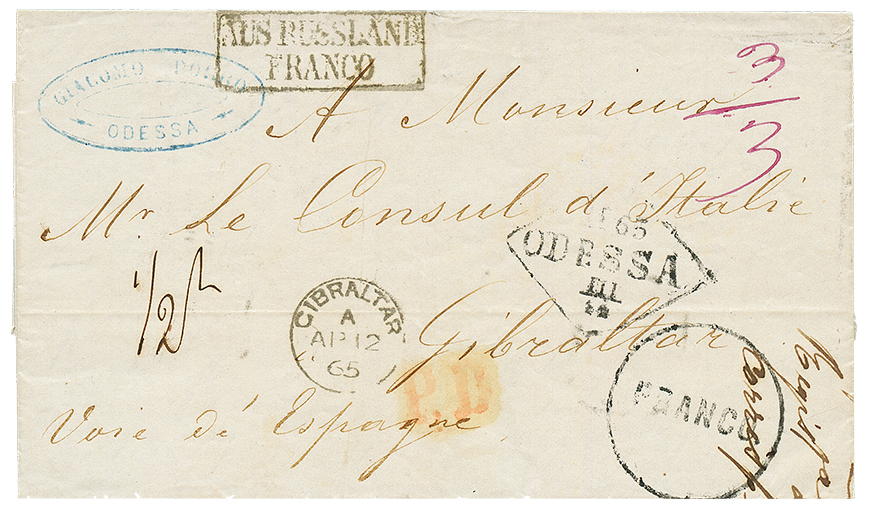 AUS RUSSLAND
FRANCO
GIACOMO
ODESSA
3
3
A Monsieur
Mr. Le Consul d'Italie
65
ODESSA
III
1/2
GIBRALTAR
A
AP 12
65
Gibraltar
P.D
FRANCO
Voie de Espagne